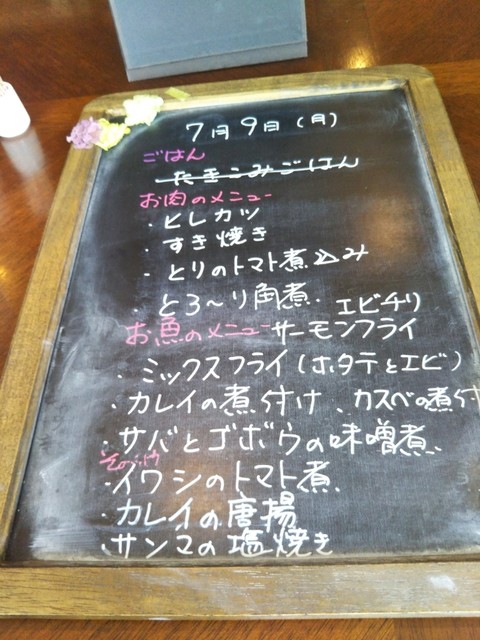 7月9日(月)
ごはん
たきこみごはん
お肉のメニュー
・ヒレカツ
・すき焼き
・とりのトマト煮込み
・とろ～り角煮. エビチリ
お魚のメニュー サーモンフライ
・ミックスフライ(ホタテとエビ)
・カレイの煮付け、カスベの煮付
・サバとゴボウの味噌煮
・イワシのトマト煮
・カレイの唐揚
・サンマの塩焼き